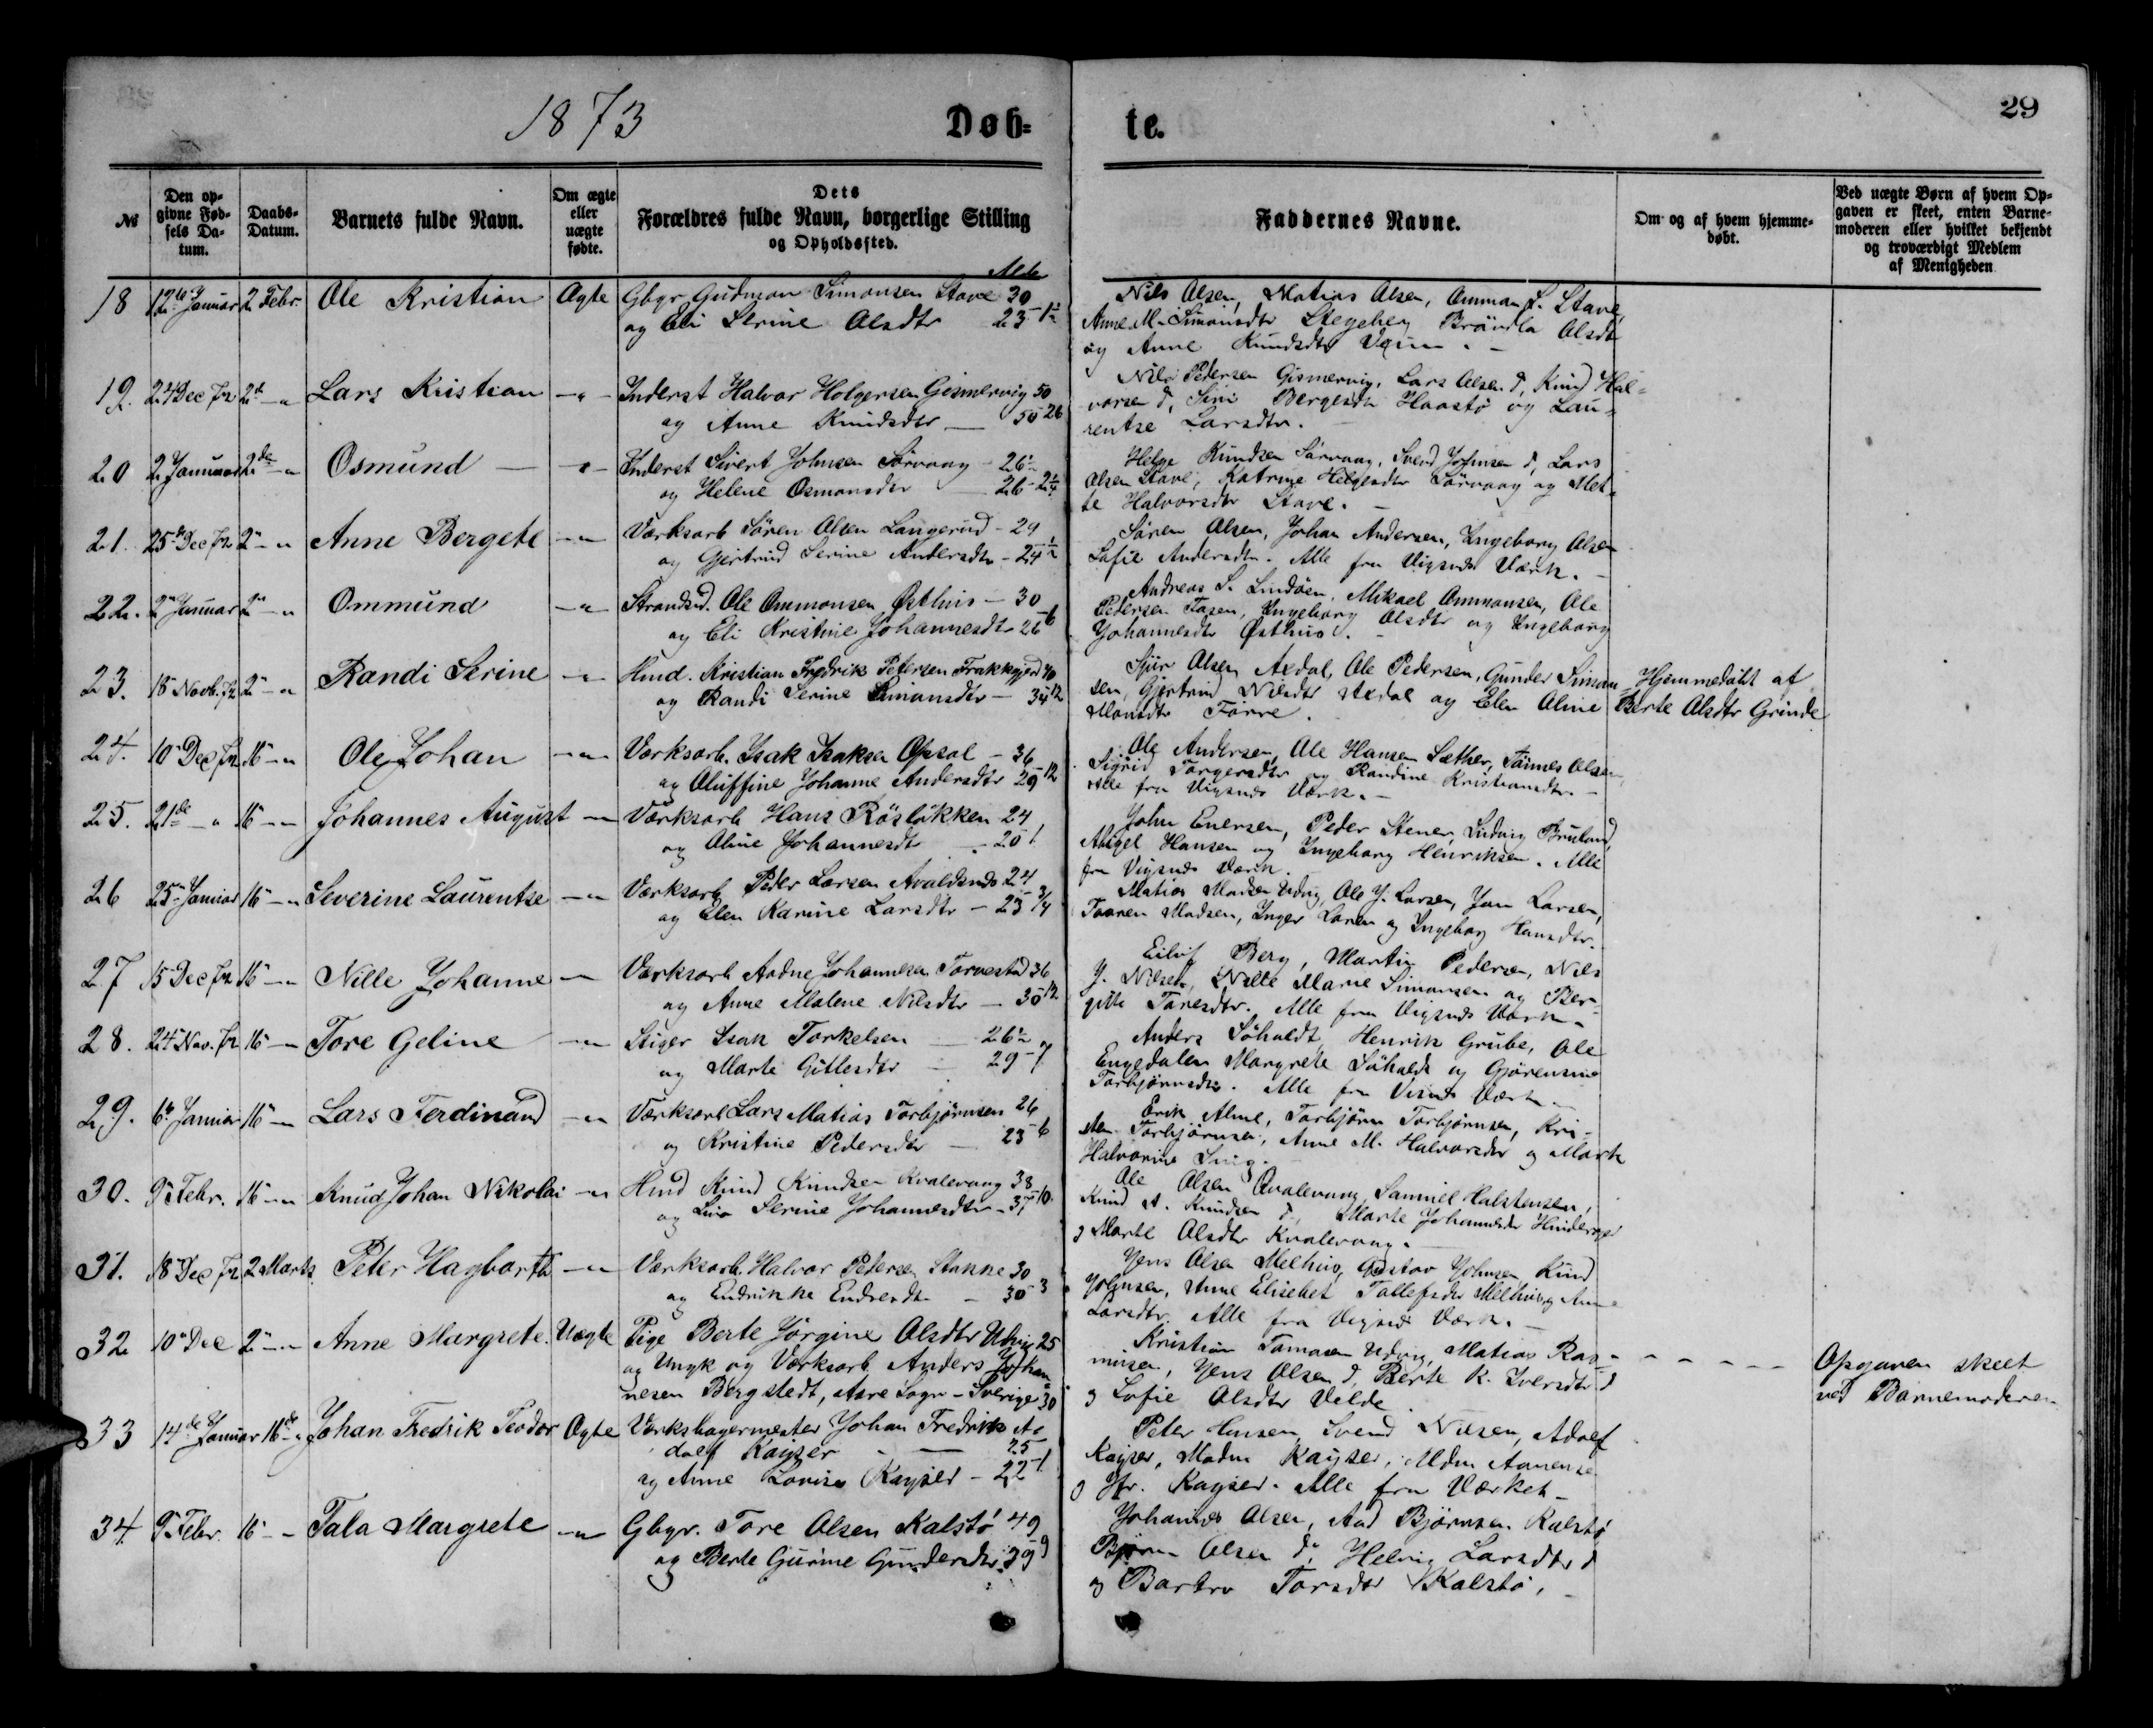 1873 Døb-
te. 29
№
Den op-
givne Fød-
sels Da-
tum.
Daabs-
Datum.
Barnets fulde Navn.
Om ægte
eller
uægte
fødte.
Dets
Forældres fulde Navn, borgerlige Stilling
og Opholdssted.
Faddernes Navne.
Om og af hvem hjemme-
døbt.
Ved uægte Børn af hvem Op-
gaven er skeet, enten Barne-
moderen eller hvilket bekjendt
og troværdigt Medlem
af Menigheden
18 12te Januar 2 Febr. Ole Kristian Ægte Gbgr. Gudmon Simonsen Stave 30
og Eli Serine Olsdtr 23
Nils Olsen, Matias Olsen, Omman S. Stave,
Anne M. Simonsdtr Brönla Olsdtr
og Anne Knudsdtr
19. 24 Dec 72 2d - " Lars Kristian - " - Inderst Halvor Holgersen Gismervig 50
og Anne Knudsdtr — 50 26
Nils Pedersen Gismervig, Lars Olsen d, Knud Hal-
vorsen d, Siri Bergesdtr Haastø og Lau-
rentse Larsdtr.
20 2 Januar 2de - " Osmund - " - Inderst Sivert Johnsen Sörvaag - 26
og Helene Osmonsdtr 26
Helge Knudsen Sörvaag, Svend Johnsen d, Lars
Olsen Stave, Katrine Helgesdtr Sörvaag og Met-
te Halvorsdtr Stave. -
21. 25de Dec 72 2" - " Anne Bergete - " Værksarb Sören Olsen Langerud - 29
og Gjertrud Serine Andersdtr - 24
Sören Olsen, Johan Andersen, Ingeborg Olsen
Sofie Andersdtr. Alle fra Vigsnes Værk. -
22. 2" Januar 2" - " Ommund - " - Strands. Ole Ommonsen Østhus - 30
og Eli Kristine Johannesdtr 26 6
Andreas S. Lindöen, Mikael Ommonsen, Ole
Pedersen Fosen, Ingeborg Olsdtr og Ingeborg
Johannesdtr Østhus. -
23. 15 Novb. 72 2" - " Randi Serine - " Hmd. Kristian Fredrik Petersen Frakkagjerd 40
og Randi Serine Simonsdtr - 34 12
Sjur Olsen Axdal, Ole Pedersen, Gunder Simon-
sen, Gjertrud Nilsdtr Axdal og Elen Oline
Monsdtr Förre.
Hjemmedöbt af
Berte Olsdtr Grinde
24. 10" Dec 72 16 - " Ole Johan - " - Værksarb. Isak Isaksen Opsal - 36
og Oluffine Johanne Andersdtr 29 12
Ole Andersen, Ole Hansen Sæther, Tönnes Olsen
Sigrid Torgersdtr og Randine Kristiansdtr -
Alle fra Vigsnes Værk. -
25. 21de - " 16 - " Johannes August - " Værksarb Hans Röslökken 24
og Oline Johannesdtr - 20 1
John Enersen, Peder Stener, Ludvig Bruland,
Hansen og Ingeborg Henriksen. Alle
fra Vigsnes Værk.
26 25" Januar 16 - " Severine Laurentse - " Værksarb Peder Larsen Avaldsnes 24
og Elen Karine Larsdtr - 23 3/4
Matias Madsen Udvig, Ole J. Larsen, Jan Larsen,
Madsen, Inger Larsen og Ingeborg Hansdtr.
27 15 Dec 72 16" - " Nille Johanne - Værksarb Aadne Johannesen Torvestad 36
og Anne Malene Nilsdtr - 30 12
Eilif Berg, Martin Pedersen, Nils
J. Nilsen, Nille Marie Simonsen og Ber-
gitte Toresdtr. Alle fra Vigsnes Værk.
28. 24" Nov. 72 16" - " Tore Geline - " Stiger Isak Torkelsen 26
og Marte Gitlesdtr - 29 - 7
Anders Söholdt, Henrik Grube, Ole
Engedalen Margrete Söholdt og Gjörensine
Torbjörnsdtr. Alle fra Vigsnes Værk -
29. 6te Januar 16" - " Lars Ferdinand - " Værksarb Lars Matias Torbjörnsen 26
og Kristine Pedersdtr - 23 6
Erik Alne, Torbjörn Torbjörnsen, Kri-
sten Torbjörnsen, Anne M. Halvorsdtr og Marte
Halvorine
30. 9" Febr. 16" - " Knud Johan Nikolai - " Hmd Knud Knudsen Kvalevaag 38
og Serine Johannesdtr - 37 10
Ole Olsen Kvalevaag, Samuel Halstensen,
Knud A. Knudsen d, Marte Johannesdtr
og Marte Olsdtr Kvalevaag.
31. 18" Dec 72 2 Marts Peter Hagbarth - " Værksarb. Halvor Petersen Stanne 30
og Endrikke Endresdtr - 30 3
Jens Olsen Melhus, Gustav Johnsen, Knud
Johnsen, Anne Elisebet Tollefsdtr Melhus og Anne
Larsdtr. Alle fra Vigsnes Værk.
32 10" Dec 2" - " Anne Margrete. Uægte Pige Berte Jörgine Olsdtr Udvig 25
og Ungk og Værksarb Anders Johan-
nesen Bergstedt, Sogn - Sverige 30
Kristian Tomasen Udvig, Matias Ras-
musen, Jens Olsen d, Berte K. Iversdtr d
og Sofie Olsdtr Velde
Opgaven skeet
ved Barnemoderen
33 14de Januar 16de - " Johan Fredrik Teodor Ægte Værksbagermester Johan Fredrik A-
dolf Kayser - 25
og Anne Lovise Kayser - 22 1
Peter Hansen, Svend Nilsen, Adolf
Kayser, Madm Kayser, Mdm Aanensen
og Jfr. Kayser. Alle fra Værket -
34. 9" Febr. 16" - " Tala Margrete - " Gbgr. Tore Olsen Kalstö 49
og Berte Gurine Gundersdtr 39 9
Johannes Olsen, Aad Björnsen Kalstö
Björn Olsen d, Helvig Larsdtr d
og Barbro Torsdtr Kalstö,